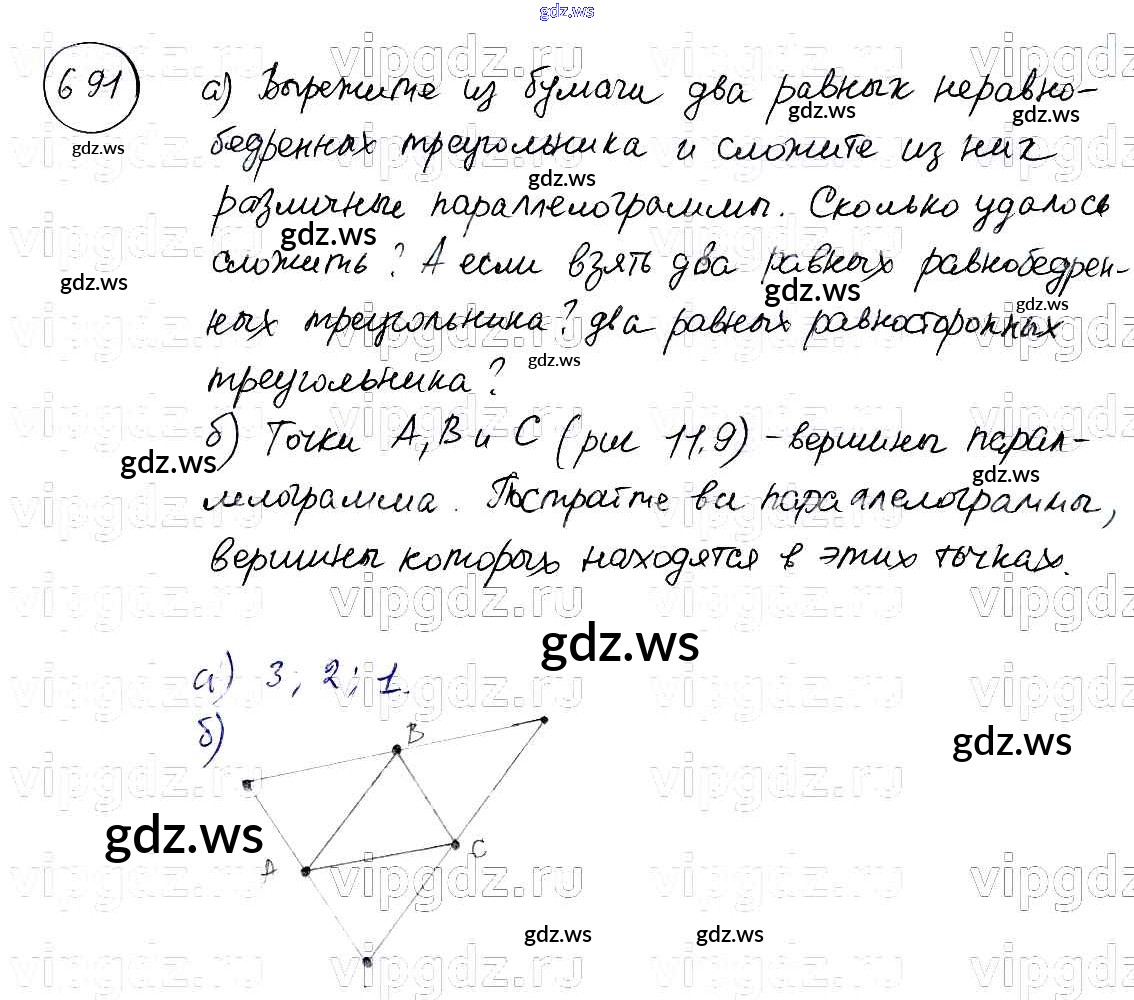 gdz.ws
691
а) Вырежите из бумаги два равных неравно-
бедренных треугольника и сложите из них
различные параллелограммы. Сколько удалось
сложить? А если взять два равных равнобедрен-
ных треугольника? два равных равносторонных
треугольника?
б) Точки А, В и С (рис 11.9) - вершины парал-
лелограмма. Постройте все параллелограммы,
вершины которых находятся в этих точках.
а) 3; 2; 1.
б)
В
А
С
vipgdz.ru
gdz.ws